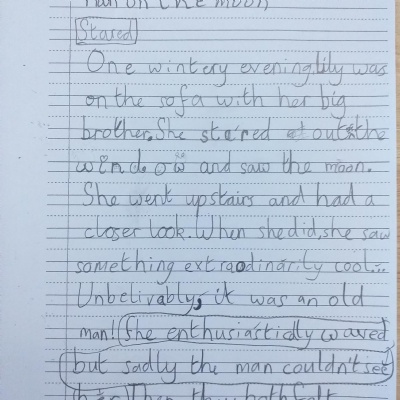 man on the moon
Stared
One wintery evening, Lily was
on the sofa with her big
brother. She stared out the
window and saw the moon.
She went upstairs and had a
closer look. When she did, she saw
something extraodinarily cool...
Unbelivably, it was an old
man! She enthusiasticly waved
but sadly the man couldn't see
her. Then they both felt